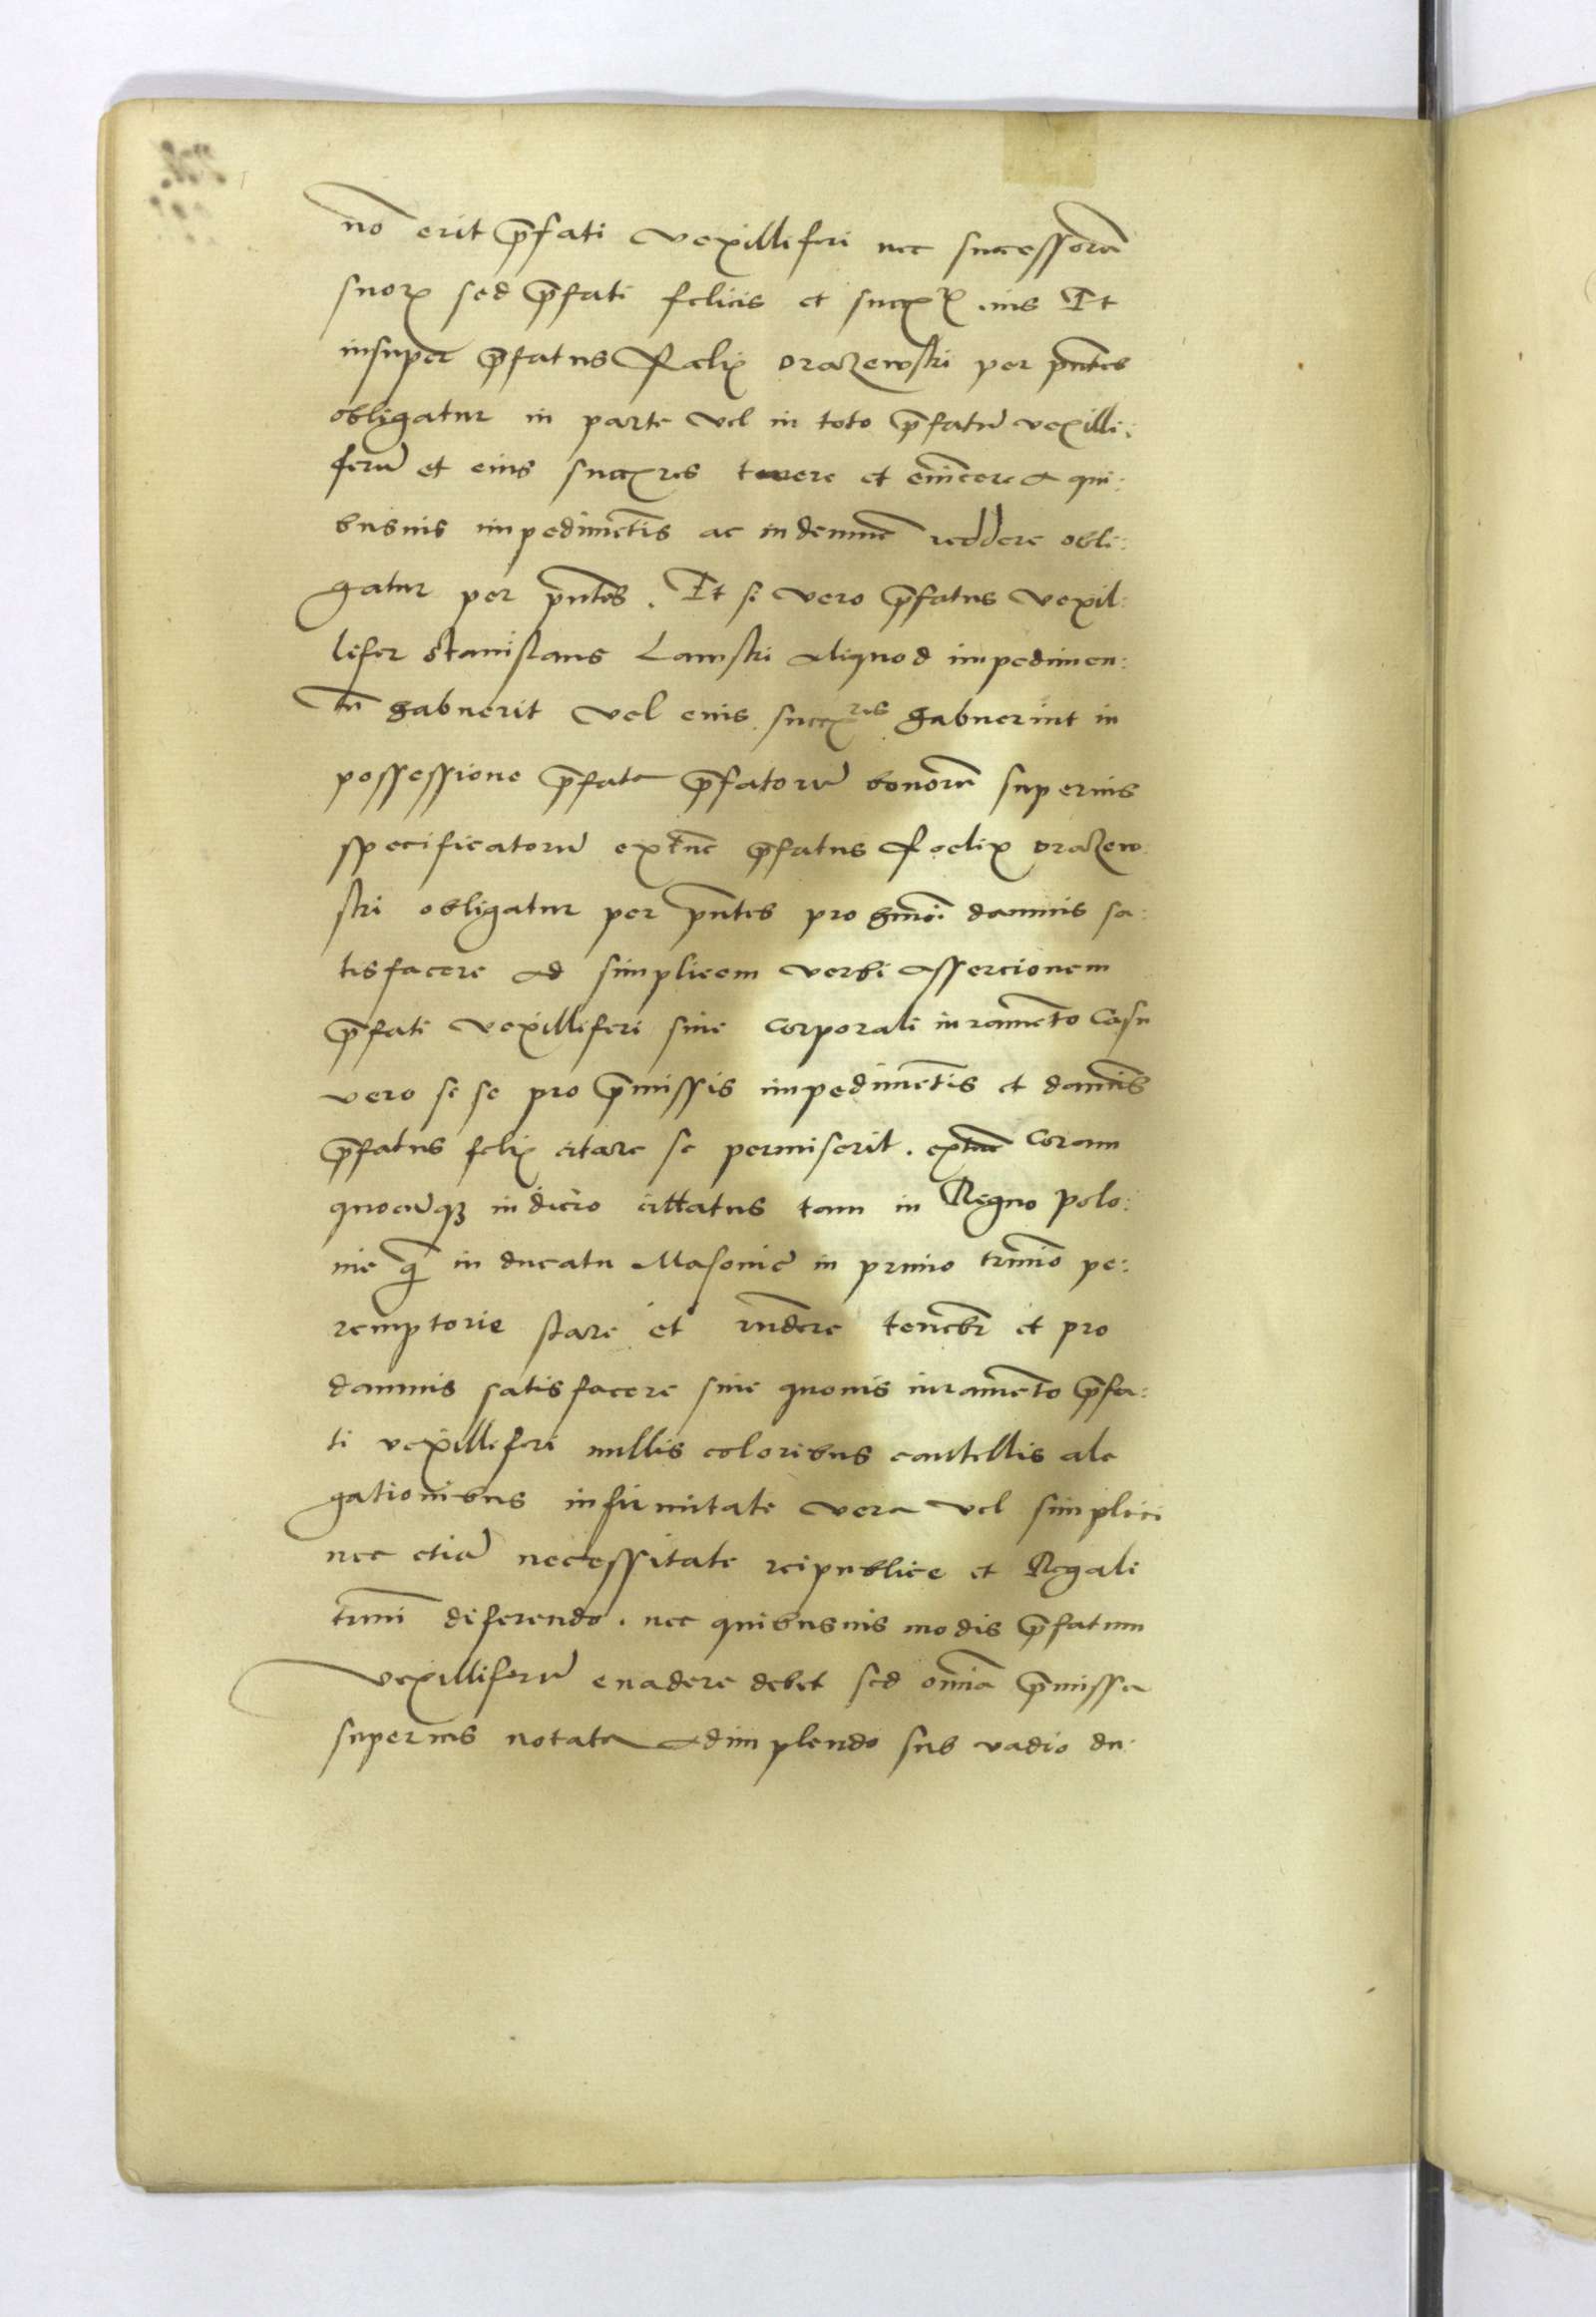 nō erit p̄fati vexilliferi nec successorū
suoꝝ sed p̄fati felicis et succꝝ eius Et
insuper p̄fatus Fælix Drazewski per pn̄tes
obligatur in parte vel in toto p̄fatū vexilli:
ferū et eius succres tuere et evīcere a qui:
busuis impedimētis ac indemnē reddere obli:
gatur per pn̄tes. Et si vero p̄fatus vexil:
lifer Stanislaus Lawski aliquod impedimen:
tū habuerit vel eius succres habuerint in
possessione p̄fata p̄fatorū bonorū superius
specificatorū extūc p̄fatus Foelix Drazew:
ski obligatur per pn̄tes pro hmōi damnis sa:
tisfacere ad simplicem verbi assercionem
p̄fati vexilliferi sine corporali iuramēto Casu
vero si se pro p̄missis impedimētis et damnis
p̄fatus felix citare se permiserit. extūc coram
quocūqꝫ iudicio cittatus tam in Regno Polo:
nie q̄ in ducatu Masouie in primo termīo pe:
remptorie stare et rn̄dere tenebr̄ et pro
damnis satisfacere sine quouis iuramēto p̄fa:
ti vexilliferi nullis coloribus cautellis ale
gationibus infirmitate vera vel simplici
nec etiā necessitate reipublice et Regali
termī diferendo. nec quibusuis modis p̄fatum
vexilliferū euadere debet sed om̄ia p̄missa
superius notata adimplendo sub vadio du: